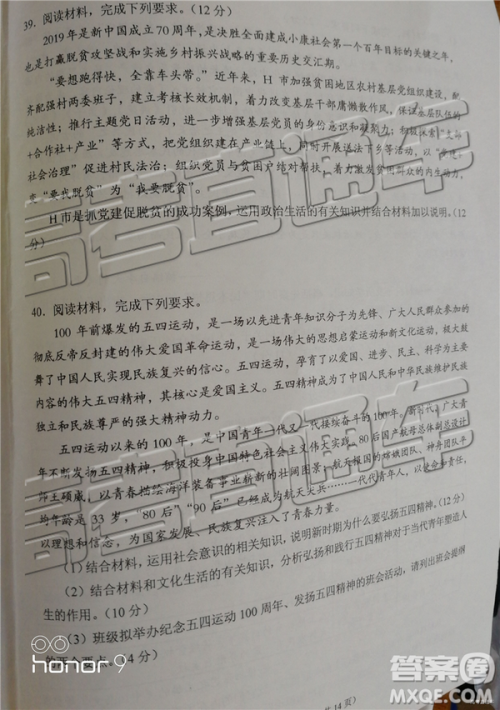 39. 阅读材料，完成下列要求。（12分）
2019年是新中国成立70周年，是决胜全面建成小康社会第一个百年目标的关键之年，
也是打赢脱贫攻坚战和实施乡村振兴战略的重要历史交汇期。
“要想跑得快，全靠车头带。”近年来，H市加强贫困地区农村基层党组织建设，配
齐配强村两委班子，建立考核长效机制，着力改变基层干部庸懒散作风，保证基层队伍的
纯洁性；推行主题党日活动，进一步增强基层党员的身份意识和凝聚力；积极探索“支部
+合作社+产业”等方式，把党组织建在产业链上，同时开展送法下乡等活动，以“
社会治理”促进村民法治；组织党员与贫困户结对帮扶，着力激发贫困群众的内生动力，
变“要我脱贫”为“我要脱贫”。
H市是抓党建促脱贫的成功案例，运用政治生活的有关知识并结合材料加以说明。（12
分）
40. 阅读材料，完成下列要求。
100年前爆发的五四运动，是一场以先进青年知识分子为先锋、广大人民群众参加的
彻底反帝反封建的伟大爱国革命运动，是一场伟大的思想启蒙运动和新文化运动，极大鼓
舞了中国人民实现民族复兴的信心。五四运动，孕育了以爱国、进步、民主、科学为主要
内容的伟大五四精神，其核心是爱国主义。五四精神是激励了中国人民和中华民族维护民族
独立和民族尊严的强大精神动力。
五四运动以来的100年，是中国青年一代又一代接续奋斗的100年。新时代，广大青
年不断发扬五四精神，积极投身中国特色社会主义伟大实践。80后国产航母总体副总设计
师王硕威，以青春描绘海洋装备事业崭新的壮阔图景；航天报国的嫦娥团队、神舟团队平
均年龄是33岁，“80后”“90后”已经成为航天尖兵……一代代青年人，以使命和责任，
以理想和信念，为国家发展、民族复兴注入了青春力量。
（1）结合材料，运用社会意识的相关知识，说明新时期为什么要弘扬五四精神。（12分）
（2）结合材料和文化生活的有关知识，分析弘扬和践行五四精神对于当代青年塑造人
生的作用。（10分）
（3）班级拟举办纪念五四运动100周年、发扬五四精神的班会活动，请列出班会提纲
的两个要点。（4分）
共14页）
高考直通车
高考直通车
honor 9
答案圈
MXQE.COM